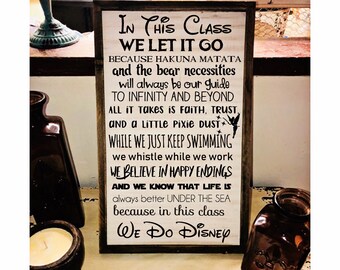 In This Class
WE LET IT GO
BECAUSE HAKUNA MATATA
and the bear necessities
will always be our guide
TO INFINITY AND BEYOND
ALL IT TAKES IS FAITH, TRUST
AND A LITTLE PIXIE DUST
WHILE WE JUST KEEP SWIMMING
we whistle while we work
WE BELIEVE IN HAPPY ENDINGS
AND WE KNOW THAT LIFE IS
always better UNDER THE SEA
because in this class
We Do Disney